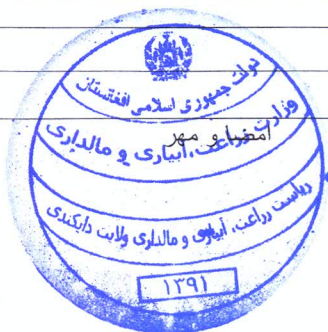 دولت جمهوری اسلامی افغانستان
وزارت زراعت، آبیاری و مالداری
امضا و مهر
ریاست زراعت، آبیاری و مالداری ولایت دایکندی
۱۳۹۱